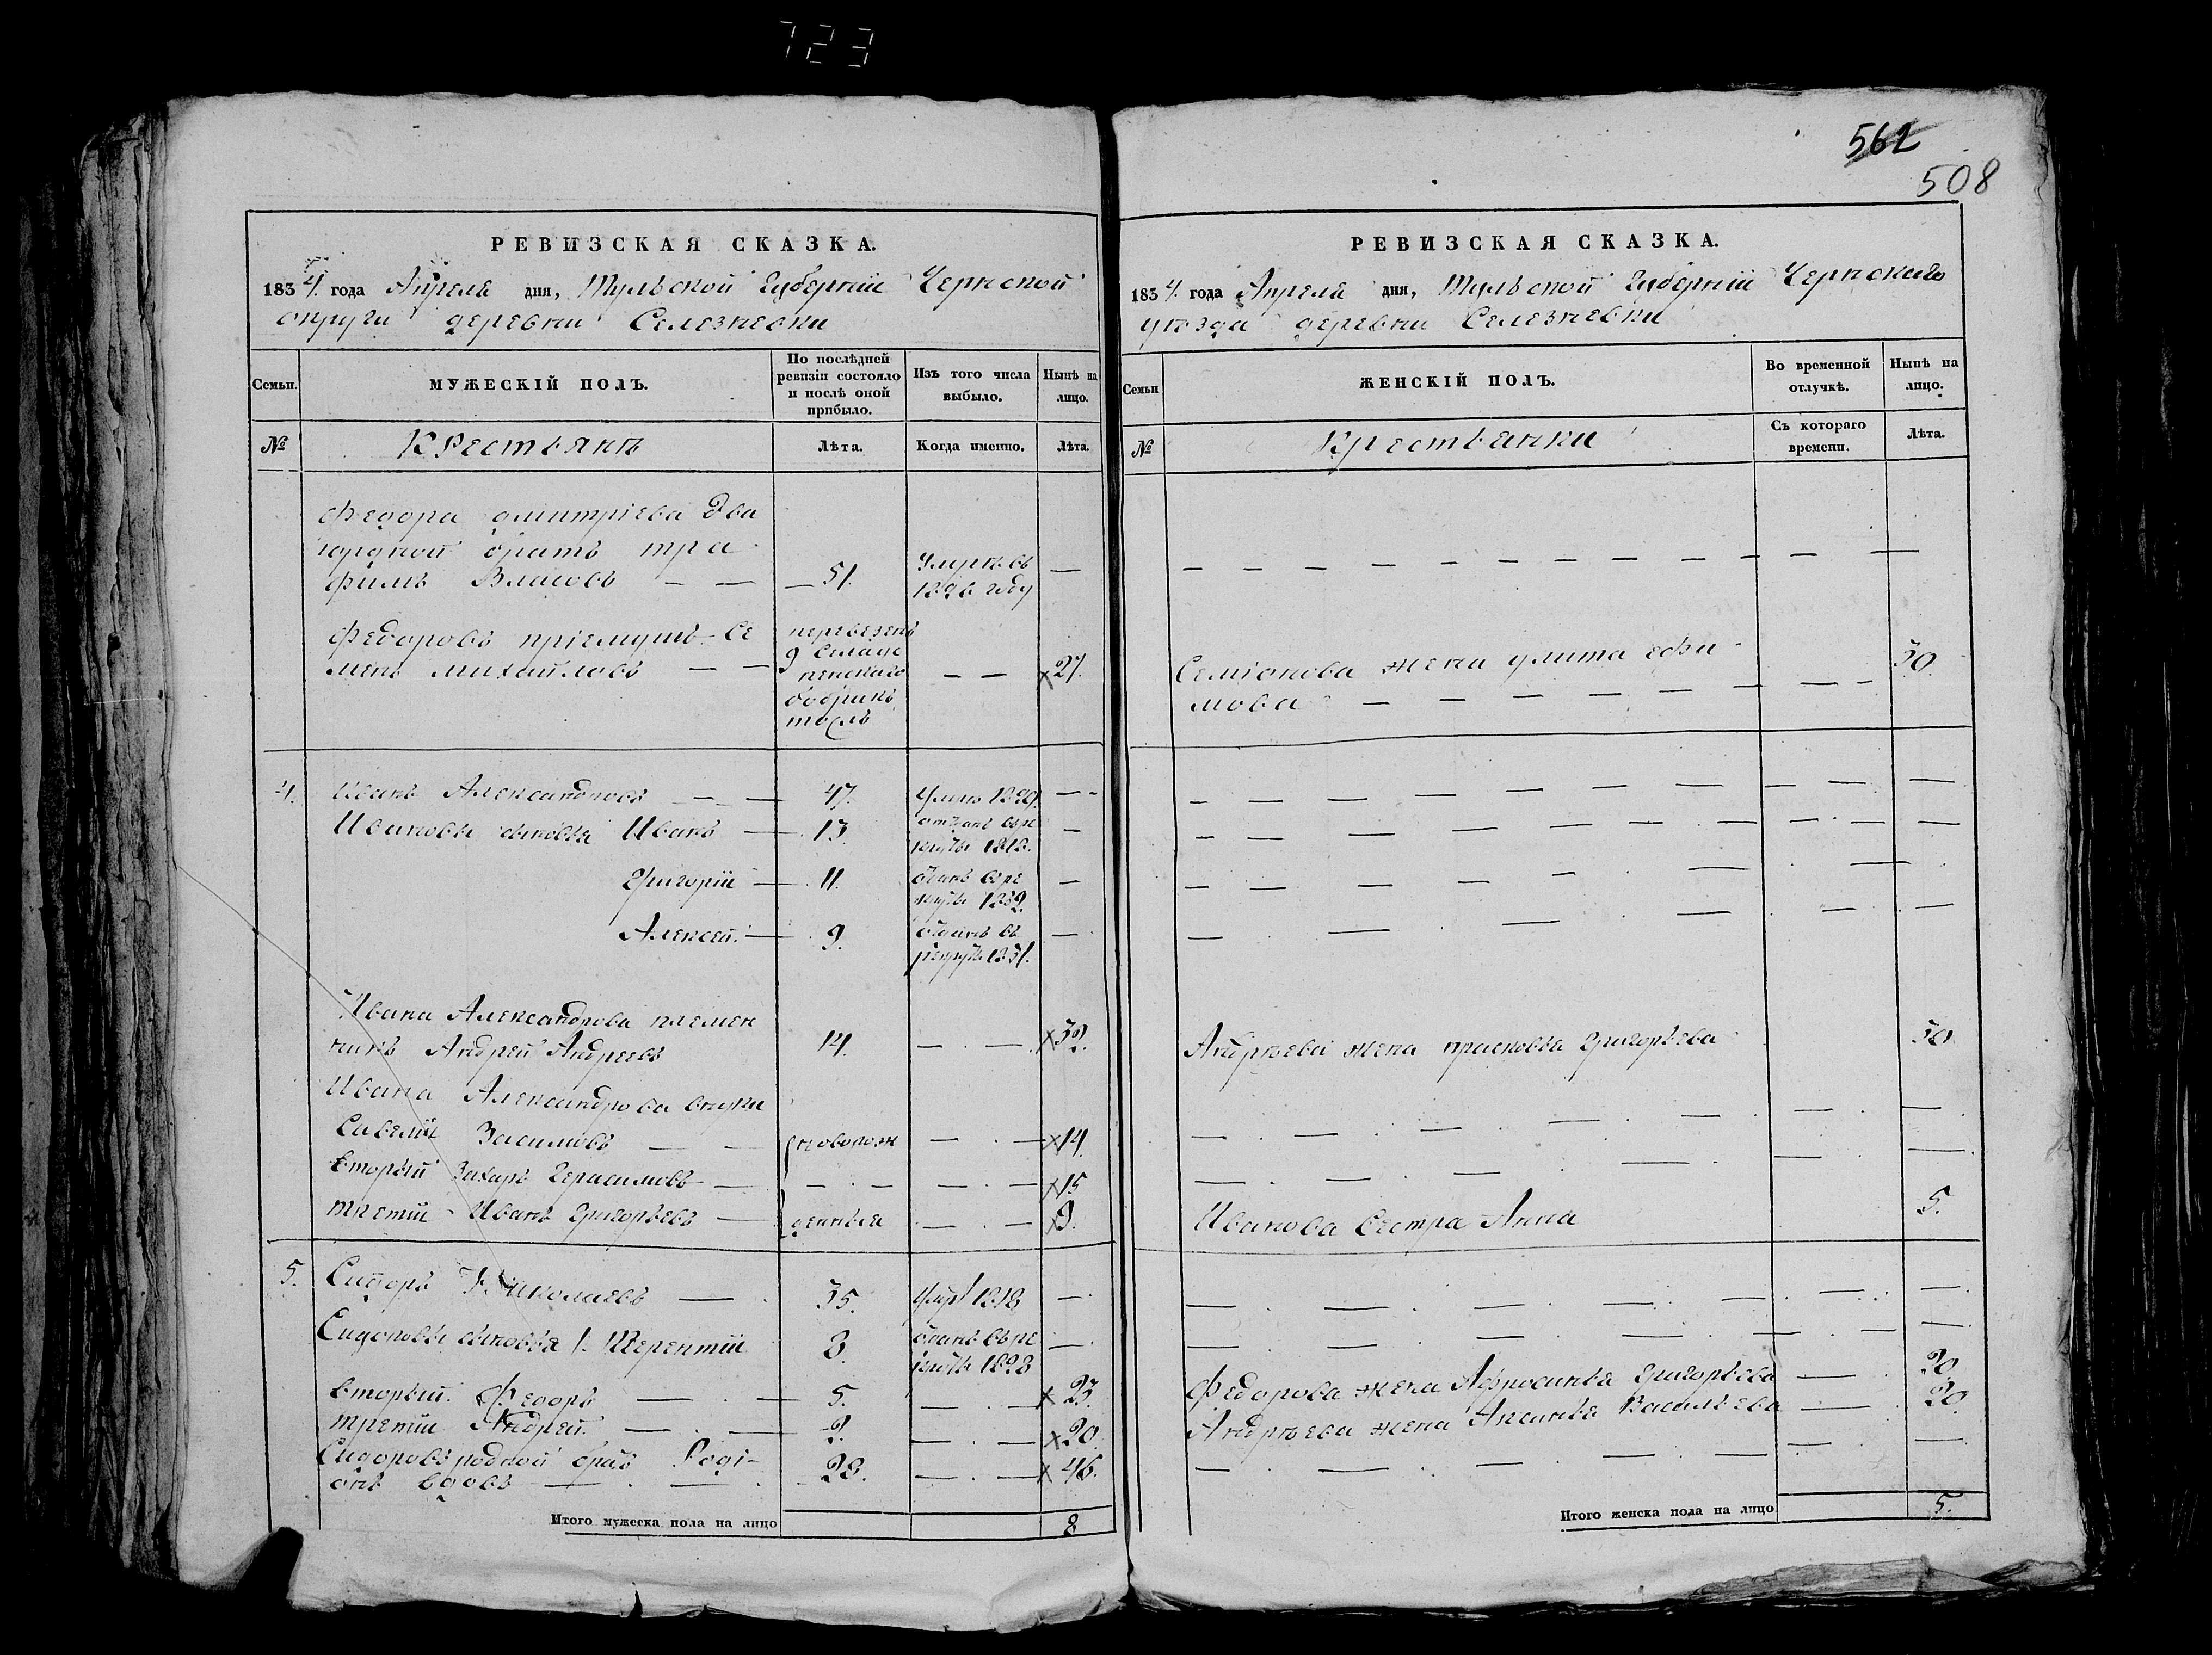 723
562
508
РЕВИЗСКАЯ СКАЗКА.
1834. года Апреля дня, Тульской Губернiи Чернской
округи деревни Селезневки
Семьи.
МУЖЕСКІЙ ПОЛЪ.
По послѣдней ревизіи состояло и послѣ оной прибыло.
Изъ того числа выбыло.
Нынѣ на лицо.
№
Крестьянѣ
Лѣта.
Когда именно.
Лѣта.
Федора дмитріева два
юродной братъ тра
фимъ Власовъ — — 51. Умре въ —
1826 году
Федоровъ пріемышъ Се
менъ михайловъ — — 9 — — x27.
перевезенъ
4. Иванъ Александровъ — — 47. умре 1829. — -
Ивановы сыновья Иванъ — 13. отданъ въ ре —
круты 1818.
Григорій — 11. отданъ въ ре —
круты 1832.
Алексей. — 9. отданъ въ —
рекруты 1831.
Ивана Александрова племен
никъ Андрей Андреевъ 14. — . — x32.
Ивана Александрова внуки
Савелий Засимовъ — — новорож — . — x14.
вторый Захаръ Герасимовъ — — . — — . — x15
третій Иванъ Григорьевъ — денныя — . — x9.
5. Сидоръ Николаевъ — . 35. умре 1818 — .
Сидоровы сыновья 1. Терентій 8. отданъ въ ре —
круты 1828
вторый. Федоръ — . — 5. — . — x 23.
третій Андрей. — . — 2. — . — x20.
Сидоровъ родной братъ Родi-
онъ вдовъ — . — . 28. — . — x 46.
Итого мужеска пола на лицо 8
РЕВИЗСКАЯ СКАЗКА.
1834. года Апреля дня, Тульской Губернiи Чернского
уѣзда деревни Селезневки
Семьи
ЖЕНСКІЙ ПОЛЪ.
Во временной отлучкѣ.
Нынѣ на лицо.
№
Крестьянки
Съ котораго времени.
Лѣта.
Семіонова жена улита ефи 30.
мова — — — — — —
Андреева жена прасковья Григорьева 30
Иванова Сестра Анна 5.
Федорова жена Афросинья Григорьева — . 20
Андреева жена Аксинья Васильева — . 20.
Итого женска пола на лицо 5.